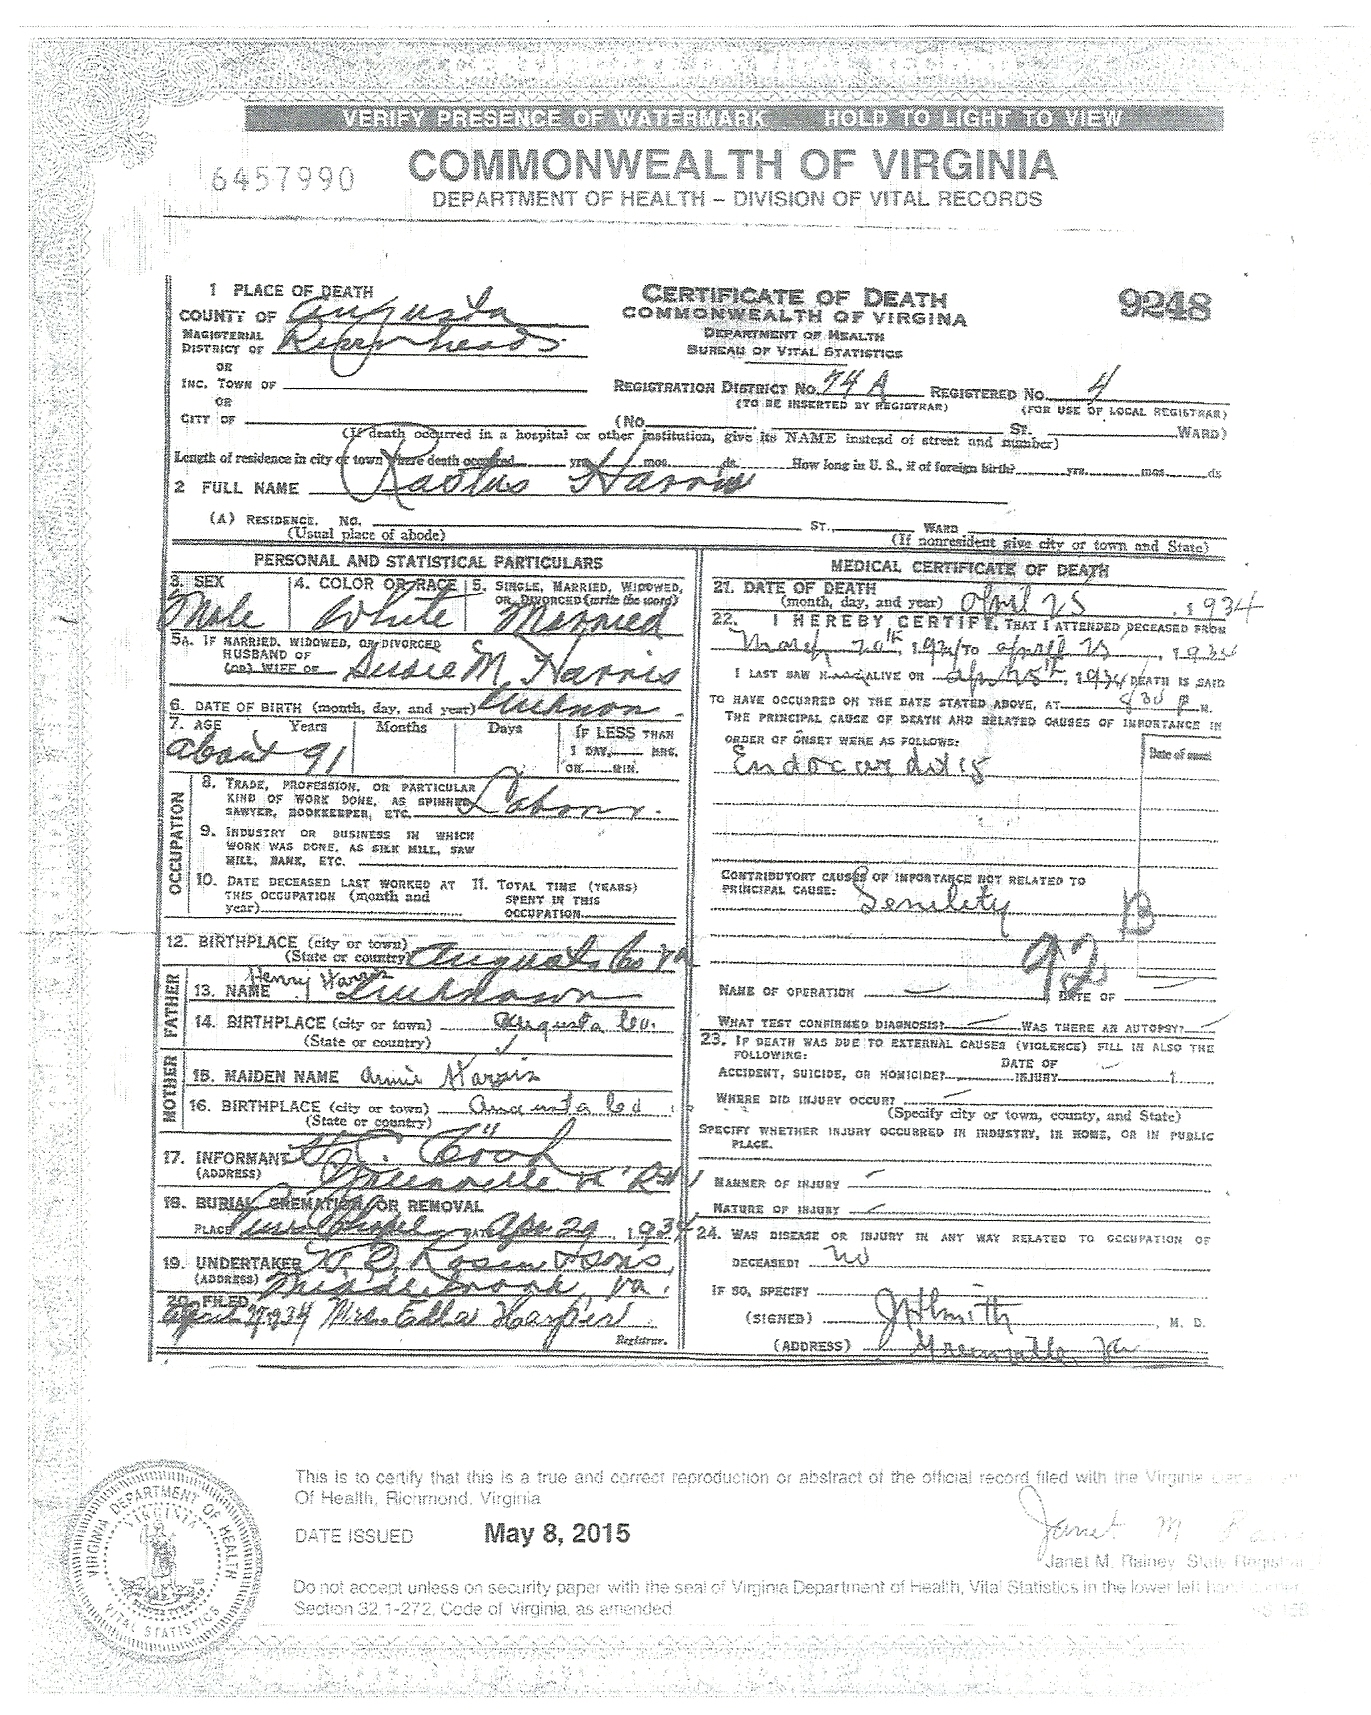 CERTIFICATION OF VITAL RECORD
VERIFY PRESENCE OF WATERMARK HOLD TO LIGHT TO VIEW
6457990
COMMONWEALTH OF VIRGINIA
DEPARTMENT OF HEALTH – DIVISION OF VITAL RECORDS
1 PLACE OF DEATH
COUNTY OF Augusta
MAGISTERIAL DISTRICT OF Riverheads
OR
INC. TOWN OF
OR
CITY OF
CERTIFICATE OF DEATH
COMMONWEALTH OF VIRGINA
DEPARTMENT OF HEALTH
BUREAU OF VITAL STATISTICS
9248
REGISTRATION DISTRICT No. 74 A REGISTERED No. 4
(TO BE INSERTED BY REGISTRAR) (FOR USE OF LOCAL REGISTRAR)
(No. ST. WARD)
(If death occurred in a hospital or other institution, give its NAME instead of street and number)
Length of residence in city or town where death occurred yrs. mos. ds. How long in U. S., if of foreign birth? yrs. mos. ds
2 FULL NAME Rastus Harris
(A) RESIDENCE. No. ST., WARD
(Usual place of abode) (If nonresident give city or town and State)
PERSONAL AND STATISTICAL PARTICULARS
3. SEX Male
4. COLOR OR RACE White
5. SINGLE, MARRIED, WIDOWED, OR DIVORCED (write the word) Married
5A. IF MARRIED, WIDOWED, OR DIVORCED
HUSBAND OF
(OR) WIFE OF M. Harris
6. DATE OF BIRTH (month, day, and year) Unknon
7. AGE Years Months Days IF LESS THAN
about 91 1 DAY, HRS.
OR MIN.
OCCUPATION
8. TRADE, PROFESSION, OR PARTICULAR
KIND OF WORK DONE, AS SPINNER,
SAWYER, BOOKKEEPER, ETC.
9. INDUSTRY OR BUSINESS IN WHICH
WORK WAS DONE, AS SILK MILL, SAW
MILL, BANK, ETC.
10. DATE DECEASED LAST WORKED AT
THIS OCCUPATION (month and
year)
11. TOTAL TIME (YEARS)
SPENT IN THIS
OCCUPATION
12. BIRTHPLACE (city or town)
(State or country) Augusta Co Va
FATHER
Henry Harris
13. NAME Unknown
14. BIRTHPLACE (city or town) Augusta Co.
(State or country)
MOTHER
15. MAIDEN NAME Annie Harris
16. BIRTHPLACE (city or town) Augusta Co
(State or country)
17. INFORMANT
(ADDRESS) Greenville Va
18. BURIAL, CREMATION, OR REMOVAL
PLACE Chapel DATE Apr 29, 1934
19. UNDERTAKER Rosen & Sons
(ADDRESS) Middlebrook, Va.
20. FILED April 27 1934 Mrs. Edda Harper
Registrar.
MEDICAL CERTIFICATE OF DEATH
21. DATE OF DEATH
(month, day, and year) April 25, 1934
22. I HEREBY CERTIFY, THAT I ATTENDED DECEASED FROM
March 20th, 1934 TO April 25, 1934
I LAST SAW H ALIVE ON Apr 25th, 1934 DEATH IS SAID
TO HAVE OCCURRED ON THE DATE STATED ABOVE, AT 830 P M.
THE PRINCIPAL CAUSE OF DEATH AND RELATED CAUSES OF IMPORTANCE IN
ORDER OF ONSET WERE AS FOLLOWS:
Date of onset
Endocarditis
CONTRIBUTORY CAUSES OF IMPORTANCE NOT RELATED TO
PRINCIPAL CAUSE: Senility
B
92
NAME OF OPERATION DATE OF
WHAT TEST CONFIRMED DIAGNOSIS? WAS THERE AN AUTOPSY?
23. IF DEATH WAS DUE TO EXTERNAL CAUSES (VIOLENCE) FILL IN ALSO THE
FOLLOWING:
ACCIDENT, SUICIDE, OR HOMICIDE? DATE OF INJURY
WHERE DID INJURY OCCUR?
(Specify city or town, county, and State)
SPECIFY WHETHER INJURY OCCURRED IN INDUSTRY, IN HOME, OR IN PUBLIC
PLACE.
MANNER OF INJURY
NATURE OF INJURY
24. WAS DISEASE OR INJURY IN ANY WAY RELATED TO OCCUPATION OF
DECEASED? No
IF SO, SPECIFY
(SIGNED) Smith, M. D.
(ADDRESS) Greenville, Va
This is to certify that this is a true and correct reproduction or abstract of the official record filed with the Virginia
Of Health, Richmond, Virginia
DATE ISSUED May 8, 2015
Janet M
Janet M. Rainey, State Registrar
Do not accept unless on security paper with the seal of Virginia Department of Health, Vital Statistics in the lower left hand corner.
Section 32.1-272, Code of Virginia, as amended
VIRGINIA DEPARTMENT OF HEALTH
VIRGINIA
VITAL STATISTICS